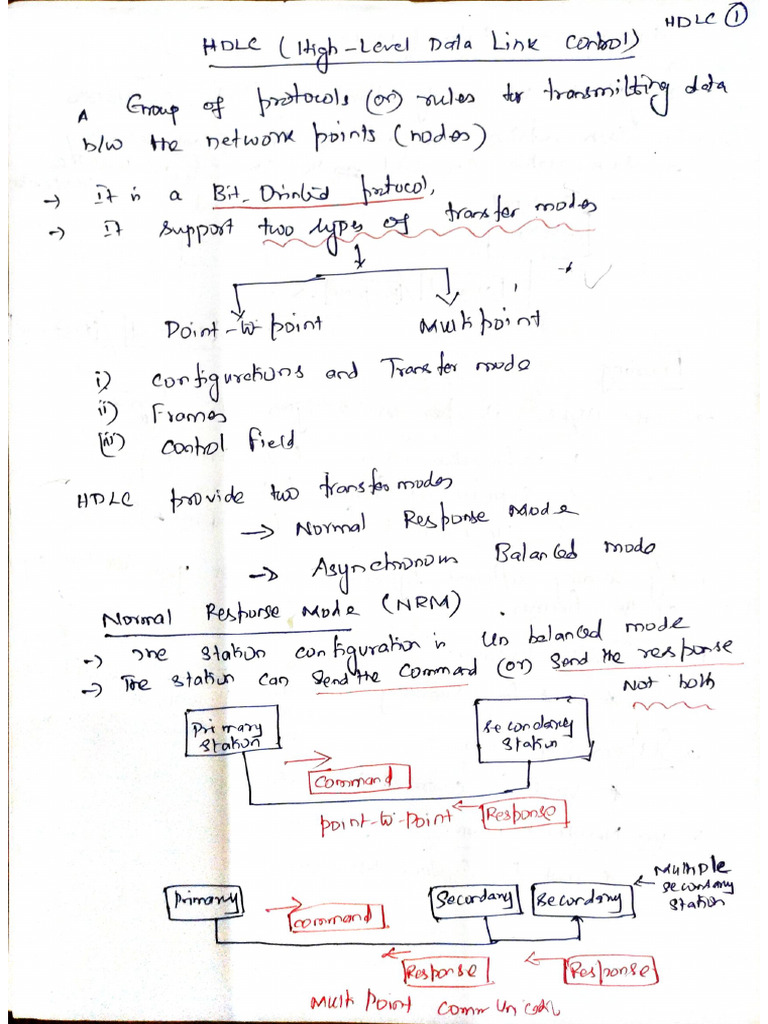 HDLC ①
HDLC (High-Level Data Link Control)
A Group of protocols (or) rules for transmitting data
b/w the network points (nodes)
→ It is a Bit-Oriented protocol,
→ It support two types of transfer modes
Point-to-point Multipoint
i) Configurations and Transfer mode
ii) Frames
iii) Control Field
HDLC provide two transfer modes
→ Normal Response Mode
→ Asynchronous Balanced mode
Normal Response Mode (NRM)
→ The station configuration is Un balanced mode
→ The station can Send the Command (or) Send the response
Not both
Primary Station
Secondary Station
Command
point-to-point
Response
Primary
Command
Secondary
Secondary
Multiple Secondary Station
Response
Response
Multi Point